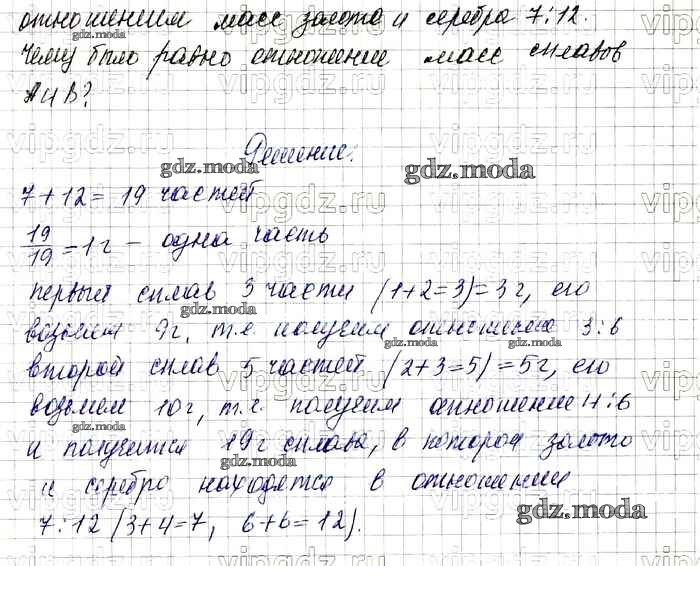 отношением масс золота и серебра 7:12.
Чему было равно отношение масс сплавов
А и В?
Решение.
7+12= 19 частей
19/19 =1г - одна часть
первый сплав 3 части (1+2=3)=3г, его
возьмем 9г, т.е. получим отношение 3:6
второй сплав 5 частей (2+3=5)=5г, его
возьмем 10г, т.е. получим отношение 4:6
и получится 19г сплава, в котором золото
и серебро находятся в отношении
7:12 (3+4=7, 6+6=12).